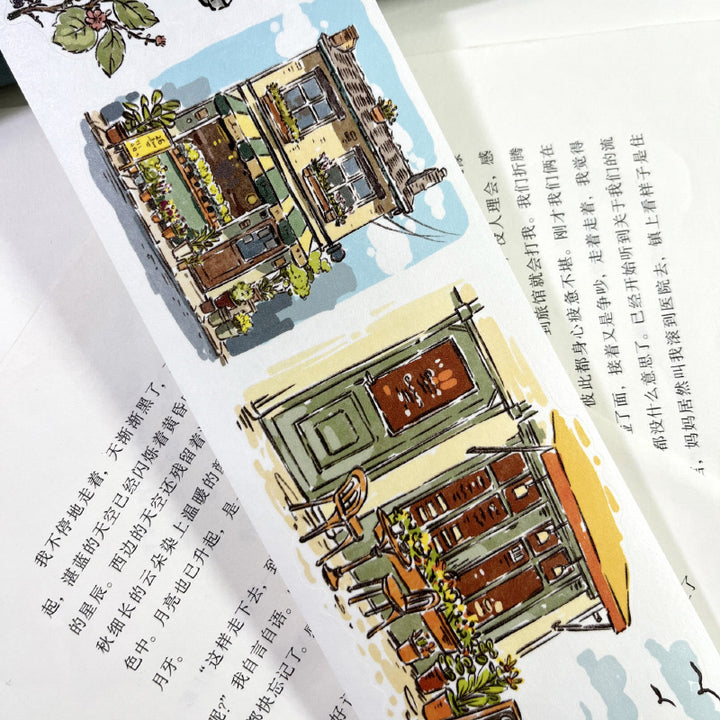 我不停地走着，天渐渐黑了，
起，湛蓝的天空已经闪烁着黄昏
的星辰。西边的天空还残留着
秋细长的云朵染上温暖的颜
色中。月亮也已升起，是
月牙。
“这样走下去，到
呢？”我自言自语。
都快忘记了。
没人理会，感
到旅馆就会打我。我们折腾
彼此都身心疲惫不堪。刚才我们俩在
了面，接着又是争吵，走着走着，我觉得
都没什么意思了。已经开始听到关于我们的流
，妈妈居然叫我滚到医院去，镇上看样子是住
了